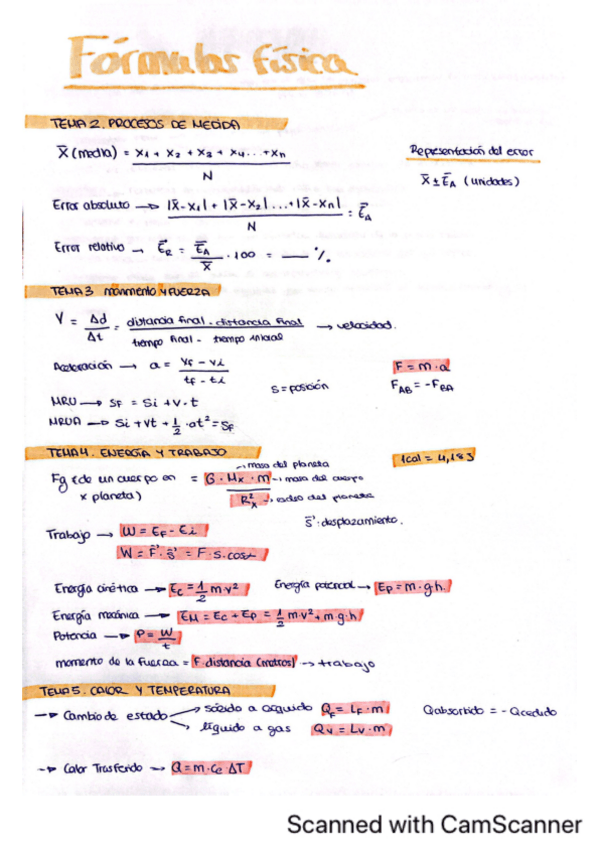 Fórmulas física
TEMA 2. PROCESOS DE MEDIDA
X̄ (media) = x1 + x2 + x3 + x4 ... + xn / N
Representación del error
X̄ ± ĒA (unidades)
Error absoluto → |x̄-x1| + |x̄-x2| ... + |x̄-xn| / N = ĒA
Error relativo → ĒR = ĒA / X̄ · 100 = __ %
TEMA 3 movimiento y FUERZA
V = Δd / Δt = distancia final - distancia final / tiempo final - tiempo inicial → velocidad.
Aceleración → a = vf - vi / tf - ti
F = m·a
s = posición
FAB = -FBA
MRU → sf = si + v·t
MRUA → si + vt + 1/2 · at² = sf
TEMA 4. ENERGÍA Y TRABAJO
1cal = 4,183
Fg (de un cuerpo en x planeta) = G · Mx · m / R²x
→ masa del planeta
→ masa del cuerpo
→ radio del planeta
s⃗: desplazamiento.
Trabajo → W = EF - Ei
W = F⃗ · s⃗ = F·s·cosα
Energía cinética → Ec = 1/2 m·v²
Energía potencial → Ep = m·g·h.
Energía mecánica → EM = Ec + Ep = 1/2 m·v² + m·g·h
Potencia → P = W / t
momento de la fuerza = F distancia (metros) → trabajo
TEMA 5. CALOR Y TEMPERATURA
→ Cambio de estado
→ sólido a líquido QF = LF·m
Qabsorbido = - Qcedido
→ líquido a gas Qv = Lv·m
→ Calor Trasferido → Q = m·ce·ΔT
Scanned with CamScanner